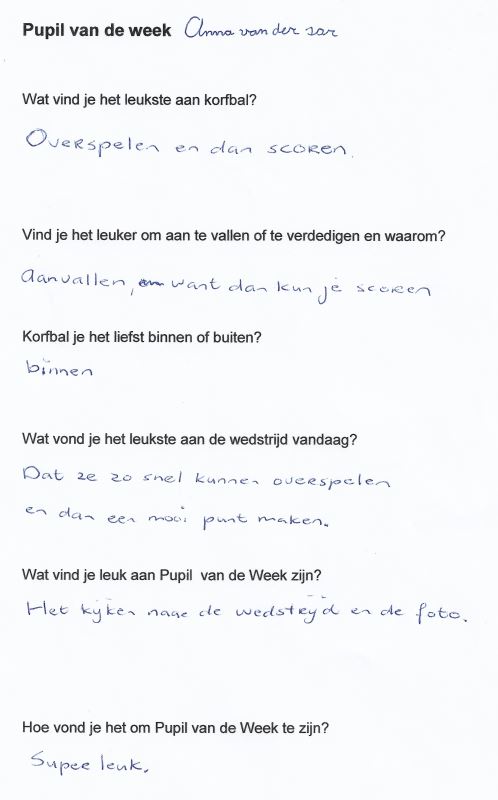 Pupil van de week Anna van der sar
Wat vind je het leukste aan korfbal?
Overspelen en dan scoren.
Vind je het leuker om aan te vallen of te verdedigen en waarom?
Aanvallen, want dan kun je scoren
Korfbal je het liefst binnen of buiten?
binnen
Wat vond je het leukste aan de wedstrijd vandaag?
Dat ze zo snel kunnen overspelen
en dan een mooi punt maken.
Wat vind je leuk aan Pupil van de Week zijn?
Het kijken naar de wedstrijd en de foto.
Hoe vond je het om Pupil van de Week te zijn?
Super leuk.